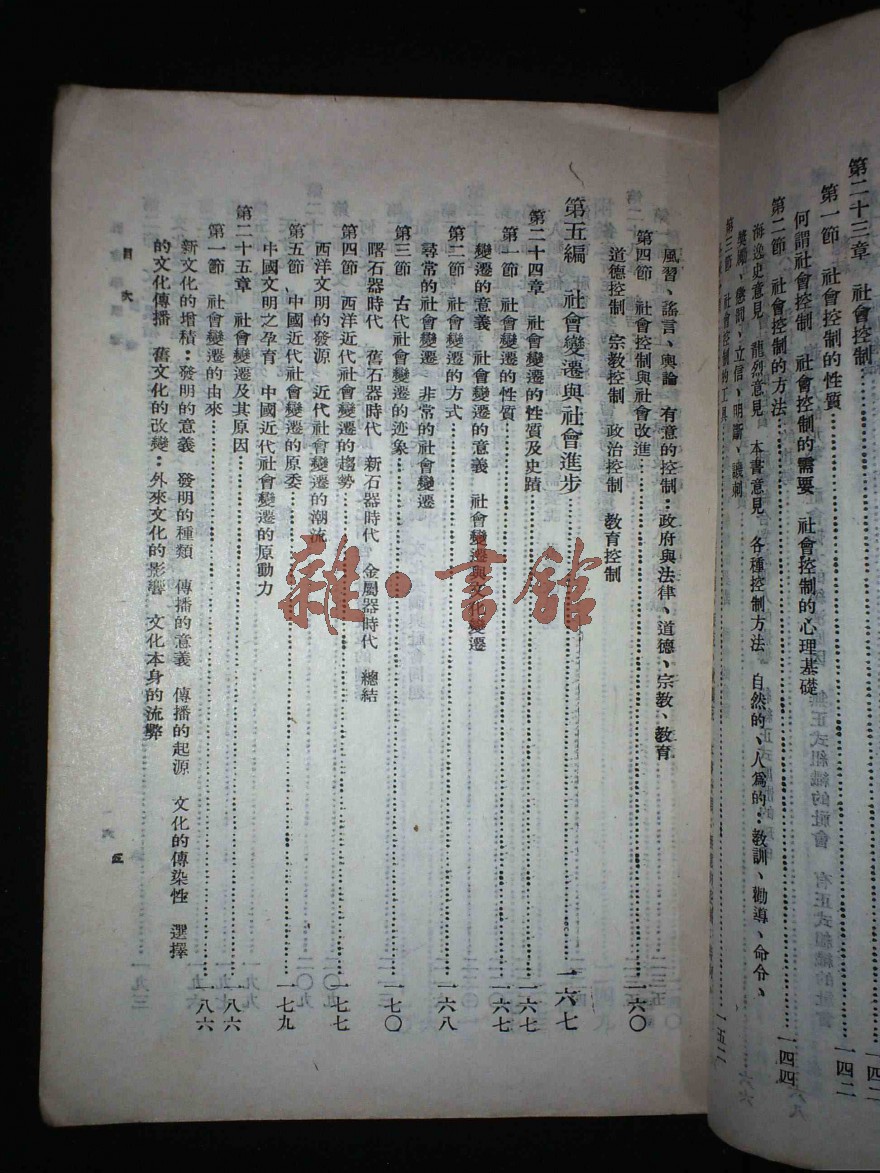 第二十三章 社會控制……一四二
第一節 社會控制的性質……一四二
何謂社會控制 社會控制的需要 社會控制的心理基礎
第二節 社會控制的方法……一四四
海逸史意見 龍烈意見 本書意見 各種控制方法 自然的、人爲的：教訓、勸導、命令、
獎勵、懲罰、立信、明斷、譏刺
第三節 社會控制的工具……一五二
風習、謠言、輿論 有意的控制：政府與法律、道德、宗教、教育
第四節 社會控制與社會改進……一六〇
道德控制 宗教控制 政治控制 教育控制
第五編 社會變遷與社會進步……一六七
第二十四章 社會變遷的性質及史蹟……一六七
第一節 社會變遷的性質……一六七
變遷的意義 社會變遷的意義 社會變遷與文化變遷
第二節 社會變遷的方式……一六八
尋常的社會變遷 非常的社會變遷
第三節 古代社會變遷的迹象……一七〇
曙石器時代 舊石器時代 新石器時代 金屬器時代 總結
第四節 西洋近代社會變遷的趨勢……一七七
西洋文明的發源 近代社會變遷的潮流
第五節 中國近代社會變遷的原委……一七九
中國文明之孕育 中國近代社會變遷的原動力
第二十五章 社會變遷及其原因……一八六
第一節 社會變遷的由來……一八六
新文化的增積：發明的意義 發明的種類 傳播的意義 傳播的起源 文化的傳染性 選擇
的文化傳播 舊文化的改變：外來文化的影響 文化本身的流弊
目次
五
雜·書館